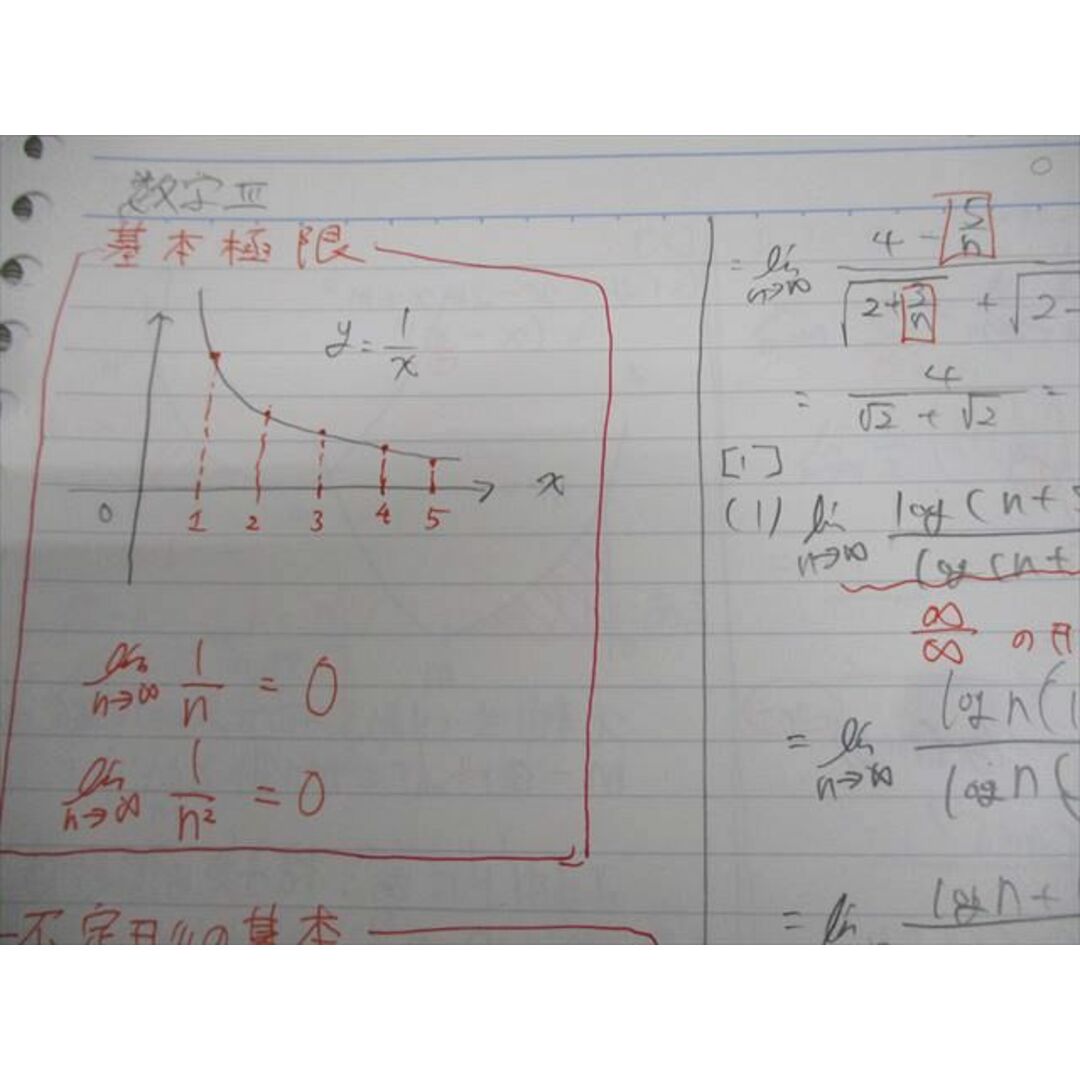 数学Ⅲ
基本極限
y = 1/x
x
0 1 2 3 4 5
lim n→∞ 1/n = 0
lim n→∞ 1/n² = 0
不定形の基本
= lim n→∞ (4 - 5/n)/(√(2+3/n) + √(2-
= 4/(√2 + √2) =
[1]
(1) lim n→∞ log(n+3/log(n+
∞/∞ の形
= lim n→∞ log n(1/log n(
= lim log n +